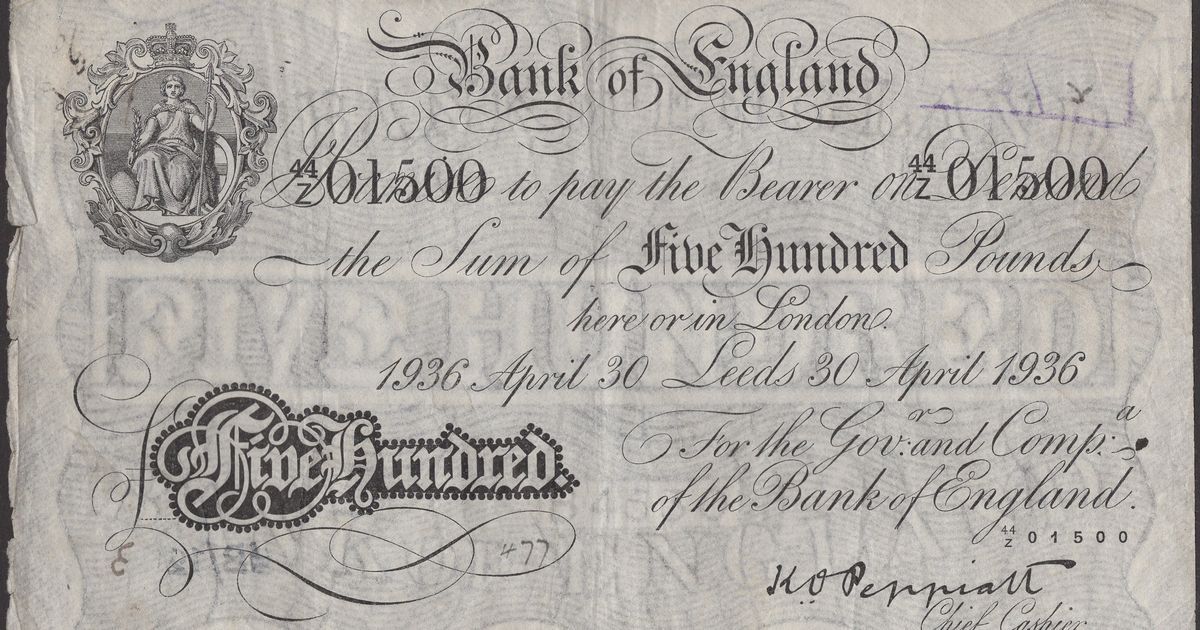 Bank of England
44 Z 01500 to pay the Bearer on Demand 44 Z 01500
the Sum of Five Hundred Pounds
here or in London.
1936 April 30 Leeds 30 April 1936
£ Five Hundred.
For the Gov:r and Comp:a
of the Bank of England.
44 Z 01500
477
K.O. Peppiatt
Chief Cashier
FIVE HUNDRED